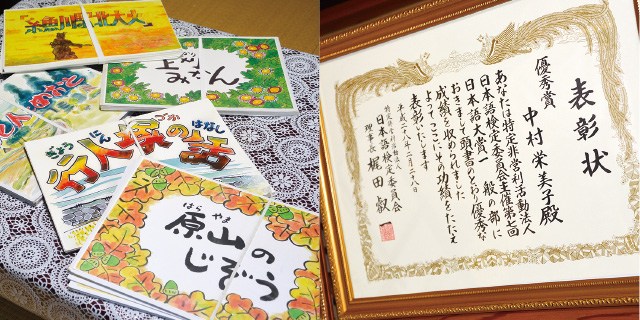 上町
みかん
ぎょう にん づか はなし
行人塚の話
はら やま
原山の
じぞう
表彰状
優秀賞
中村栄美子殿
あなたは特定非営利活動法人
日本語検定委員会主催第七回
日本語大賞一般の部に
おきまして頭書のとおり優秀な
成績を収められました
よってここにその功績をたたえ
表彰いたします
平成二十八年二月二十八日
特定非営利活動法人
日本語検定委員会
理事長 梶田叡一